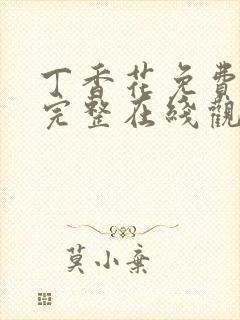 丁香花免費
完整在綫觀
莫小棄